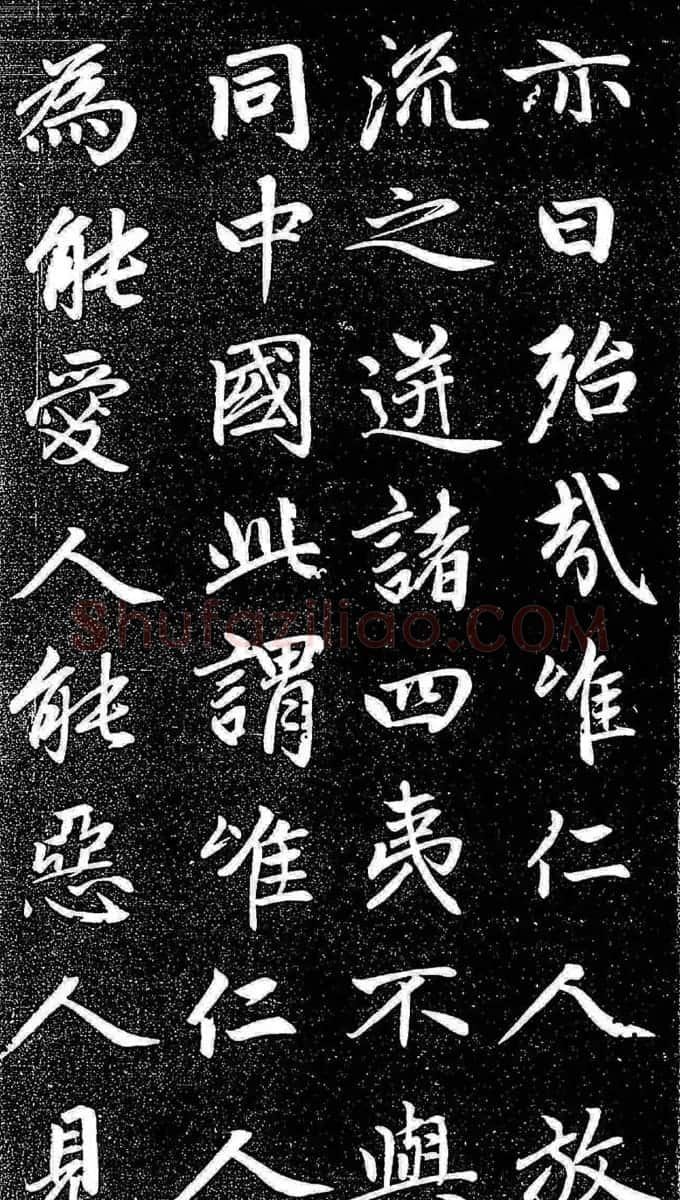 亦曰殆哉唯仁人放
流之迸諸四夷不與
同中國此謂唯仁人
為能愛人能惡人見
Shufaziliao.COM